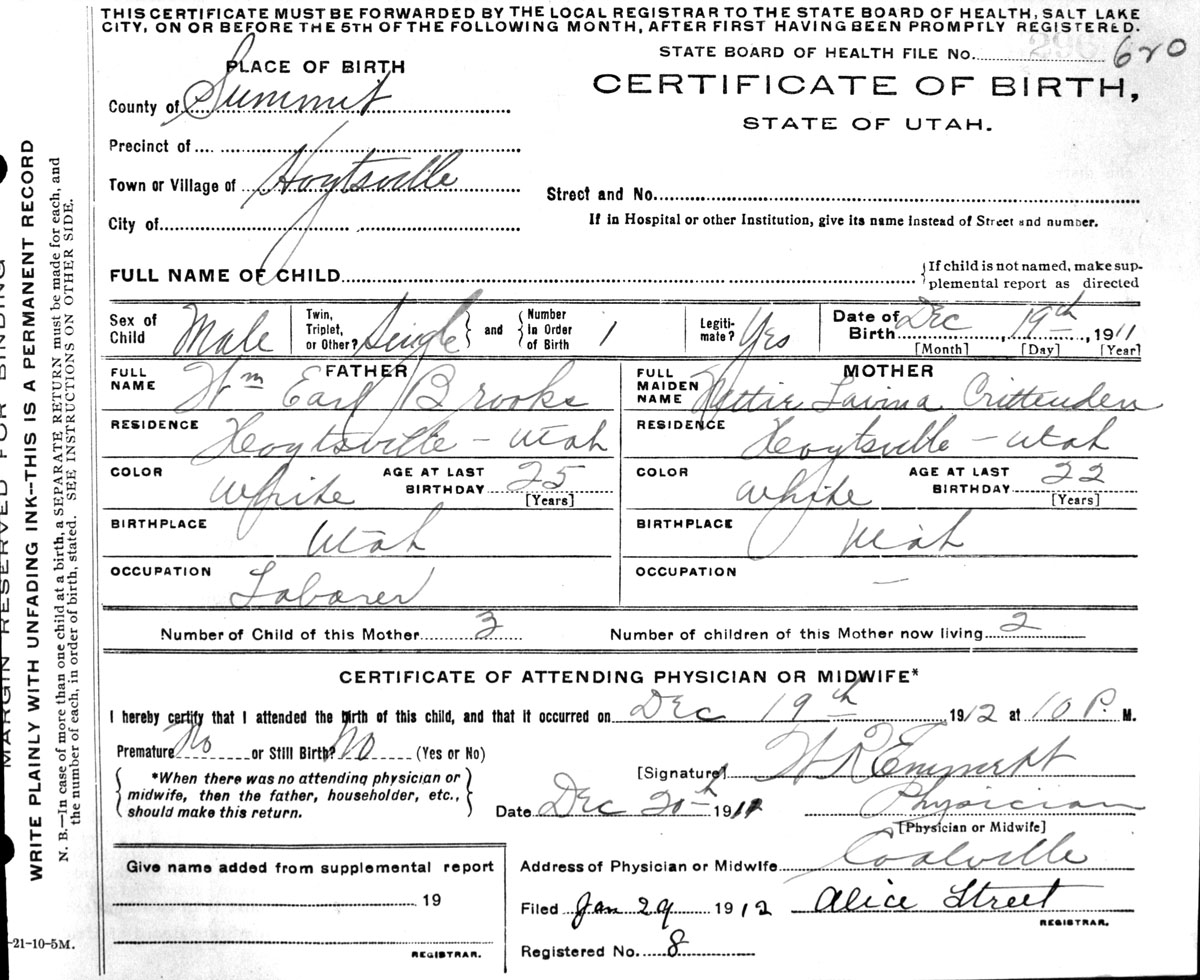 THIS CERTIFICATE MUST BE FORWARDED BY THE LOCAL REGISTRAR TO THE STATE BOARD OF HEALTH, SALT LAKE
CITY, ON OR BEFORE THE 5TH OF THE FOLLOWING MONTH, AFTER FIRST HAVING BEEN PROMPTLY REGISTERED.
STATE BOARD OF HEALTH FILE No. 620
PLACE OF BIRTH
CERTIFICATE OF BIRTH,
STATE OF UTAH.
County of Summit
Precinct of
Town or Village of Hoytsville
City of
Street and No.
If in Hospital or other Institution, give its name instead of Street and number.
FULL NAME OF CHILD
If child is not named, make sup-
plemental report as directed
Sex of Child Male
Twin, Triplet, or Other? Single and Number in Order of Birth 1
Legiti-mate? Yes
Date of Birth Dec 19th, 1911
[Month] [Day] [Year]
FATHER
FULL NAME Wm Earl Brooks
RESIDENCE Hoytsville - Utah
COLOR White AGE AT LAST BIRTHDAY 25 [Years]
BIRTHPLACE Utah
OCCUPATION Laborer
MOTHER
FULL MAIDEN NAME Nettie Lavina Crittenden
RESIDENCE Hoytsville - Utah
COLOR White AGE AT LAST BIRTHDAY 22 [Years]
BIRTHPLACE Utah
OCCUPATION —
Number of Child of this Mother 3 Number of children of this Mother now living 2
CERTIFICATE OF ATTENDING PHYSICIAN OR MIDWIFE*
I hereby certify that I attended the birth of this child, and that it occurred on Dec 19th 1912 at 10 P. M.
Premature No or Still Birth? No (Yes or No)
*When there was no attending physician or
midwife, then the father, householder, etc.,
should make this return.
[Signature] W R
Date Dec 20th 191 Physician
[Physician or Midwife]
Address of Physician or Midwife Coalville
Give name added from supplemental report
19
REGISTRAR.
Filed Jan 29 1912 Alice Street
REGISTRAR.
Registered No. 8
-21-10-5M.
MARGIN RESERVED FOR BINDING
WRITE PLAINLY WITH UNFADING INK--THIS IS A PERMANENT RECORD
N. B.—In case of more than one child at a birth, a SEPARATE RETURN must be made for each, and
the number of each, in order of birth, stated. SEE INSTRUCTIONS ON OTHER SIDE.